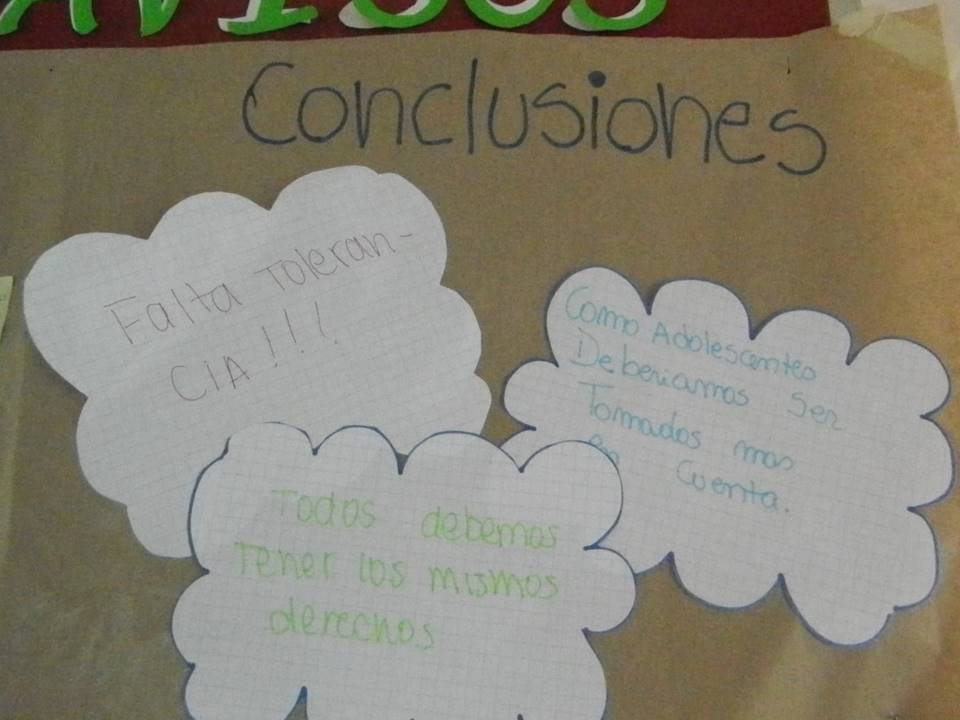 AVISOS
Conclusiones
Falta Toleran-
CIA!!!
Como Adolescentes
Deberiamos Ser
Tomados mas
en Cuenta.
Todos debemos
Tener los mismos
derechos